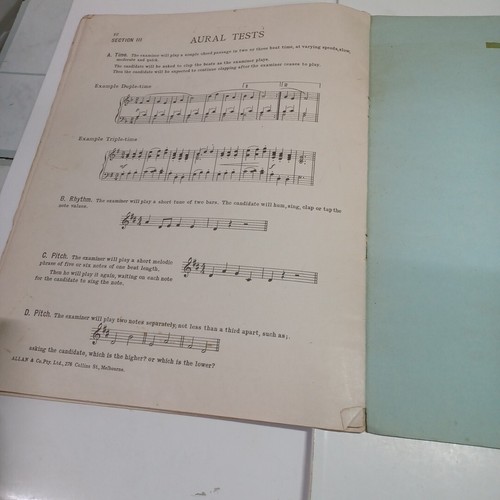 SECTION III
AURAL TESTS
A. Time. The examiner will play a simple chord passage in two or three beat time, at varying speeds, slow,
moderate and quick.
The candidate will be asked to clap the beats as the examiner plays.
Then the candidate will be expected to continue clapping after the examiner ceases to play.
Example Duple-time
Example Triple-time
B. Rhythm. The examiner will play a short tune of two bars. The candidate will hum, sing, clap or tap the
note values.
C. Pitch. The examiner will play a short melodic
phrase of five or six notes of one beat length.
Then he will play it again, waiting on each note
for the candidate to sing the note.
D. Pitch. The examiner will play two notes separately, not less than a third apart, such as;
asking the candidate, which is the higher? or which is the lower?
ALLAN & Co. Pty. Ltd., 276 Collins St., Melbourne.